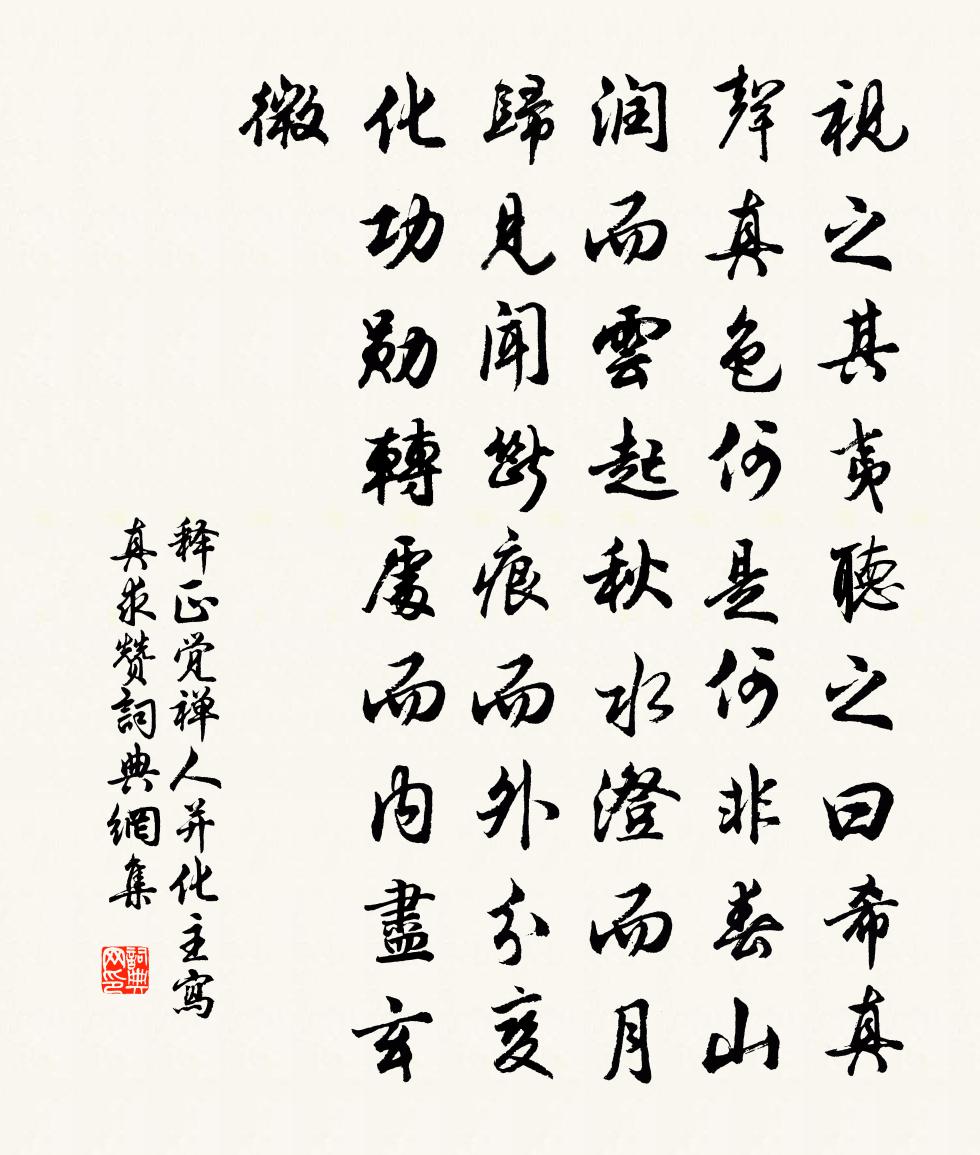 視之其夷聽之曰希真
聲真色何是何非春山
润而雲起秋水澄而月
歸見聞斷痕而外分变
化功勋轉處而内盡玄
微
释正觉禅人并化主寫
真求赞詞典網集
詞典网印